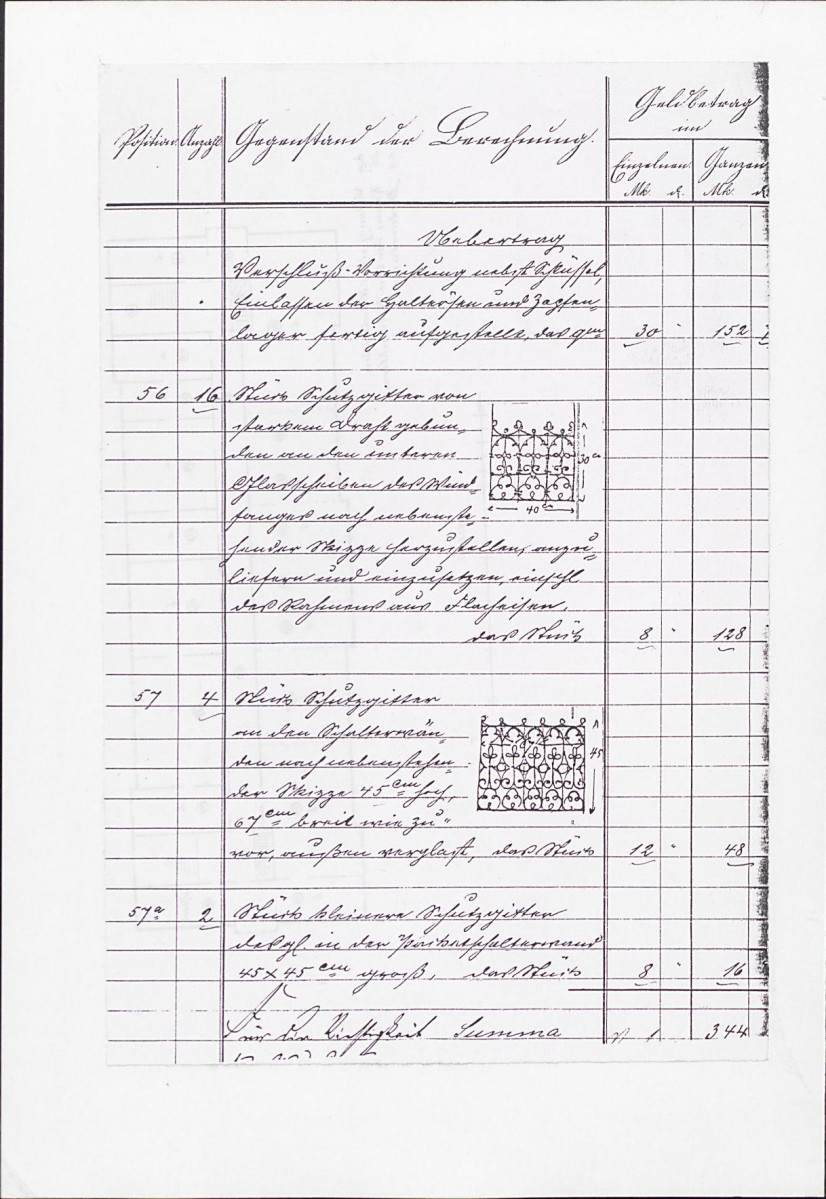 Position. Anzahl. Gegenstand der Berechnung. Geldbetrag
im
Einzelnen. Ganzen
Mk. d. Mk. d.
Uebertrag
Verschluß-Vorrichtung nebst Schlüssel,
Einlassen der Halteösen und Zapfen-
lager fertig aufgestellt, das qm 30 " 152
56 16 Stück Schutzgitter von
starkem Draht gebun-
den an den unteren
Glasscheiben des Wind-
fanges nach nebenste-
hender Skizze herzustellen, anzu-
liefern und einzusetzen, einschl
des Rahmens aus Flacheisen,
das Stück 8 " 128
30 cm
40 cm
57 4 Stück Schutzgitter
an den Schalterwän-
den nach nebenstehen-
der Skizze 45 cm hoch,
67 cm breit wie zu-
vor, außen verglast, das Stück 12 " 48
45
57a 2 Stück kleinere Schutzgitter
desgl. in der Packetschalterwand
45 x 45 cm groß, das Stück 8 " 16
Für die Richtigkeit Summa 344